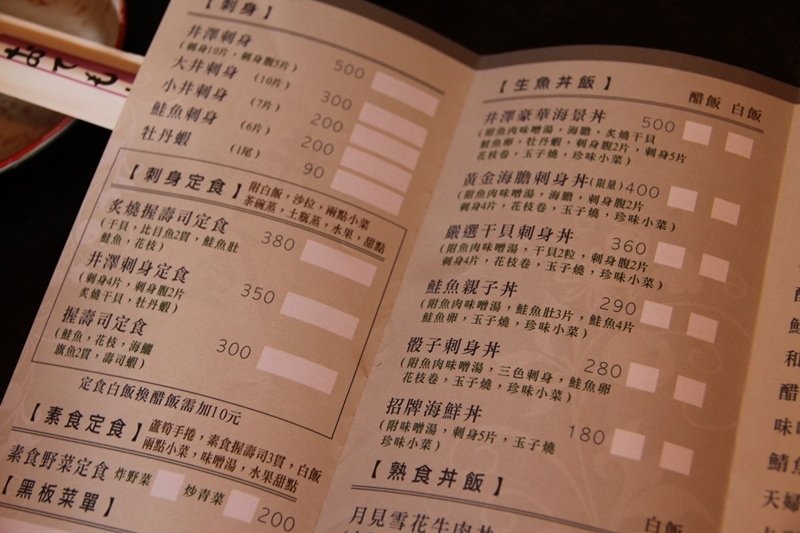 おてもと
【刺身】
井澤刺身 500
(刺身10片，刺身腹5片)
大井刺身 (10片) 300
小井刺身 (7片) 200
鮭魚刺身 (6片) 200
牡丹蝦 (1尾) 90
【刺身定食】 附白飯，沙拉，兩點小菜
茶碗蒸，土瓶蒸，水果，甜點
炙燒握壽司定食 380
(干貝，比目魚2貫，鮭魚肚
鮭魚，花枝)
井澤刺身定食 350
(刺身4片，刺身腹2片
炙燒干貝，牡丹蝦)
握壽司定食 300
(鮭魚，花枝，海鱺
旗魚2貫，壽司蝦)
定食白飯換醋飯需加10元
【素食定食】 蘆筍手捲，素食握壽司3貫，白飯
兩點小菜，味噌湯，水果甜點
素食野菜定食 炸野菜 炒青菜 200
【黑板菜單】
【生魚丼飯】
醋飯 白飯
井澤豪華海景丼 500
(附魚肉味噌湯，海膽，炙燒干貝
鮭魚卵，牡丹蝦，刺身腹2片，刺身5片
花枝卷，玉子燒，珍味小菜)
黃金海膽刺身丼(限量) 400
(附魚肉味噌湯，海膽，刺身腹2片
刺身4片，花枝卷，玉子燒，珍味小菜)
嚴選干貝刺身丼 360
(附魚肉味噌湯，干貝2粒，刺身腹2片
刺身4片，花枝卷，玉子燒，珍味小菜)
鮭魚親子丼 290
(附魚肉味噌湯，鮭魚肚3片，鮭魚4片
鮭魚卵，玉子燒，珍味小菜)
骰子刺身丼 280
(附魚肉味噌湯，三色刺身，鮭魚卵
花枝卷，玉子燒，珍味小菜)
招牌海鮮丼 180
(附味噌湯，刺身5片，玉子燒
珍味小菜)
【熟食丼飯】
白飯
月見雪花牛肉丼
鮭
和
醋
味
鯖
天婦